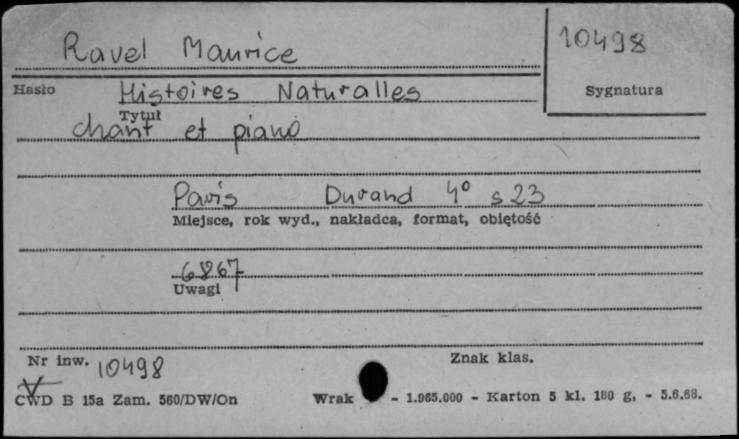 Ravel Maurice
10498
Hasło
Histoires Naturalles
Sygnatura
Tytuł
chant et piano
Paris Durand 4° s 23
Miejsce, rok wyd., nakładca, format, objętość
6867
Uwagi
Nr inw. 10498
Znak klas.
CWD B 15a Zam. 560/DW/On
Wrak - 1.965.000 - Karton 5 kl. 180 g, - 5.6.68.